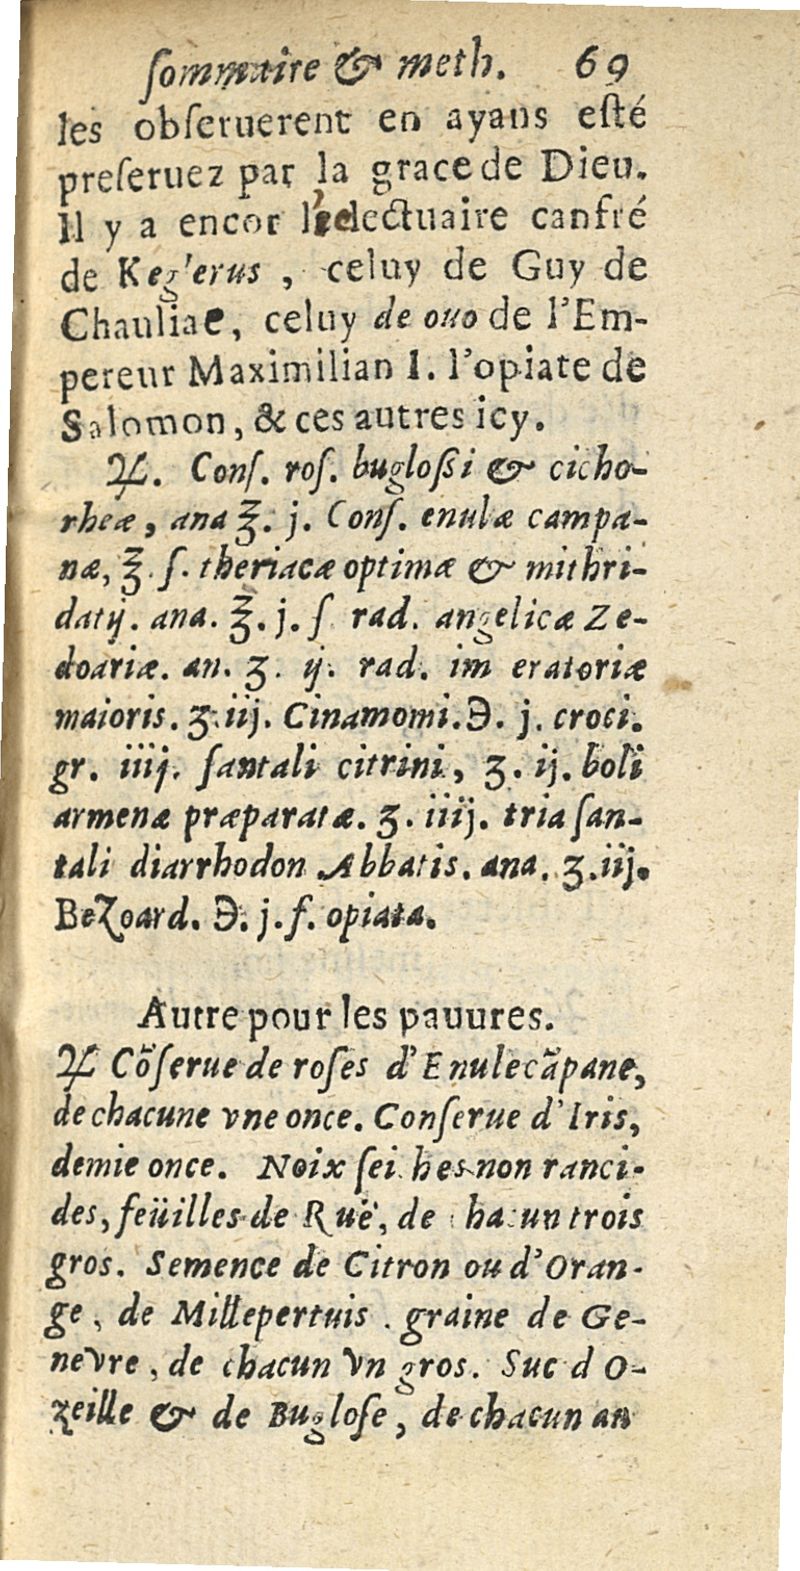 ſommaire & meth. 69
les obſeruerent en ayans eſté
preſeruez par la grace de Dieu.
Il y a encor l'electuaire canfré
de Keg'erus, celuy de Guy de
Chauliac, celuy de ouo de l'Em-
pereur Maximilian I. l'opiate de
Salomon, & ces autres icy.
♃. Conſ. roſ. bugloßi & cicho-
rheæ, ana ℥. j. Conſ. enulæ campa-
næ, ℥. ſ. theriacæ optimæ & mithri-
datij. ana. ℥. j. ſ rad. angelicæ Ze-
doariæ. an. ʒ. ij. rad. im eratoriæ
maioris. ʒ. iij. Cinamomi. ℈. j. croci.
gr. iiij. ſantali citrini, ʒ. ij. boli
armenæ præparatæ. ʒ. iiij. tria ſan-
tali diarrhodon Abbatis. ana. ʒ. iij.
BeZoard. ℈. j. f. opiata.
Autre pour les pauures.
♃ Cõſerue de roſes d'Enulecãpane,
de chacune vne once. Conſerue d'Iris,
demie once. Noix ſei hes non ranci-
des, feüilles de Ruë, de ha un trois
gros. Semence de Citron ou d'Oran-
ge, de Millepertuis. graine de Ge-
nevre, de chacun vn gros. Suc d O-
zeille & de Bugloſe, de chacun an